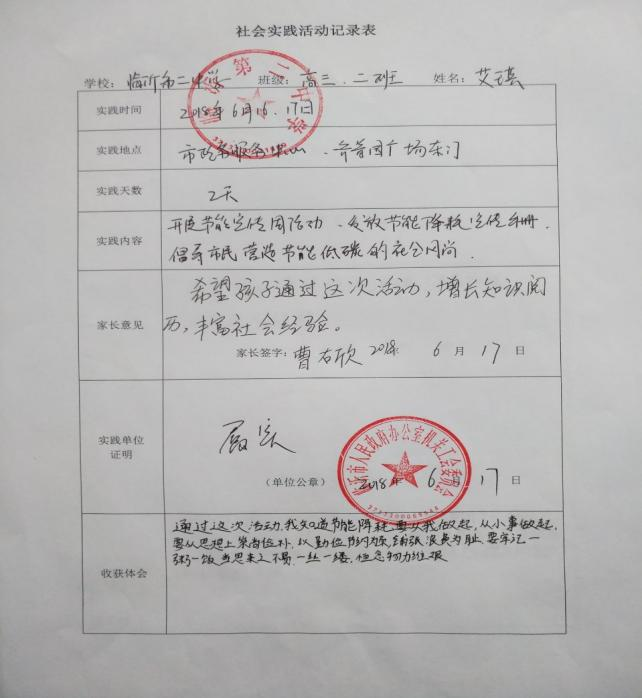 社会实践活动记录表
学校：临沂第二中学 班级：高三.二班 姓名：艾琪
实践时间 2018年6月16.17日
实践地点 市政务服务中心、齐鲁园广场东门
实践天数 2天
实践内容 开展节能宣传周活动、发放节能降耗宣传手册.
倡导市民营造节能低碳的社会风尚.
希望孩子通过这次活动，增长知识阅
家长意见 历，丰富社会经验。
家长签字：曹右欣 2018年 6月17日
实践单位
证明
属实
（单位公章） 2018年 6月17日
通过这次活动，我知道节能降耗要从我做起，从小事做起，
要从思想上崇尚俭朴，以勤俭节约为荣，铺张浪费为耻，要牢记一
收获体会 粥一饭当思来之不易，一丝一缕，恒念物力维艰